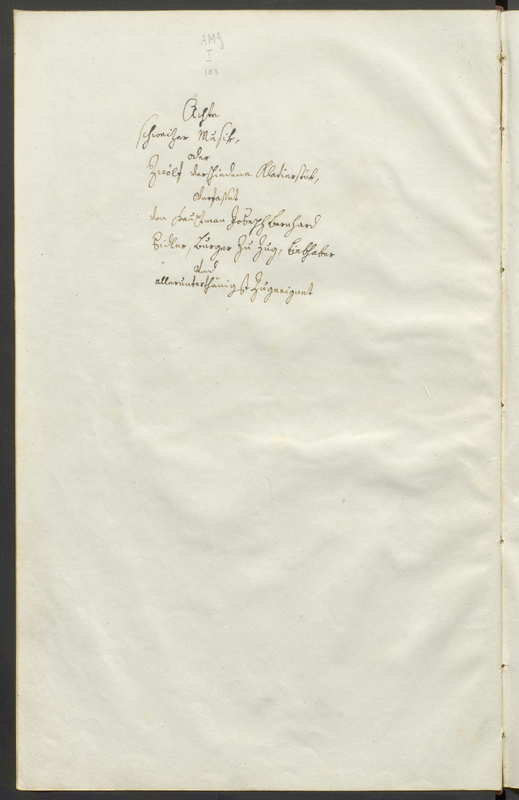 AMS
I
103
Ächte
schweitzer Musik,
oder
Zwölf verschiedene Klavierstük,
verfasset
von Hauptman Joseph Bernhard
Eidler, Bürger zu Zug, Liebhaber
und
allerunterthänigst zugeeignet